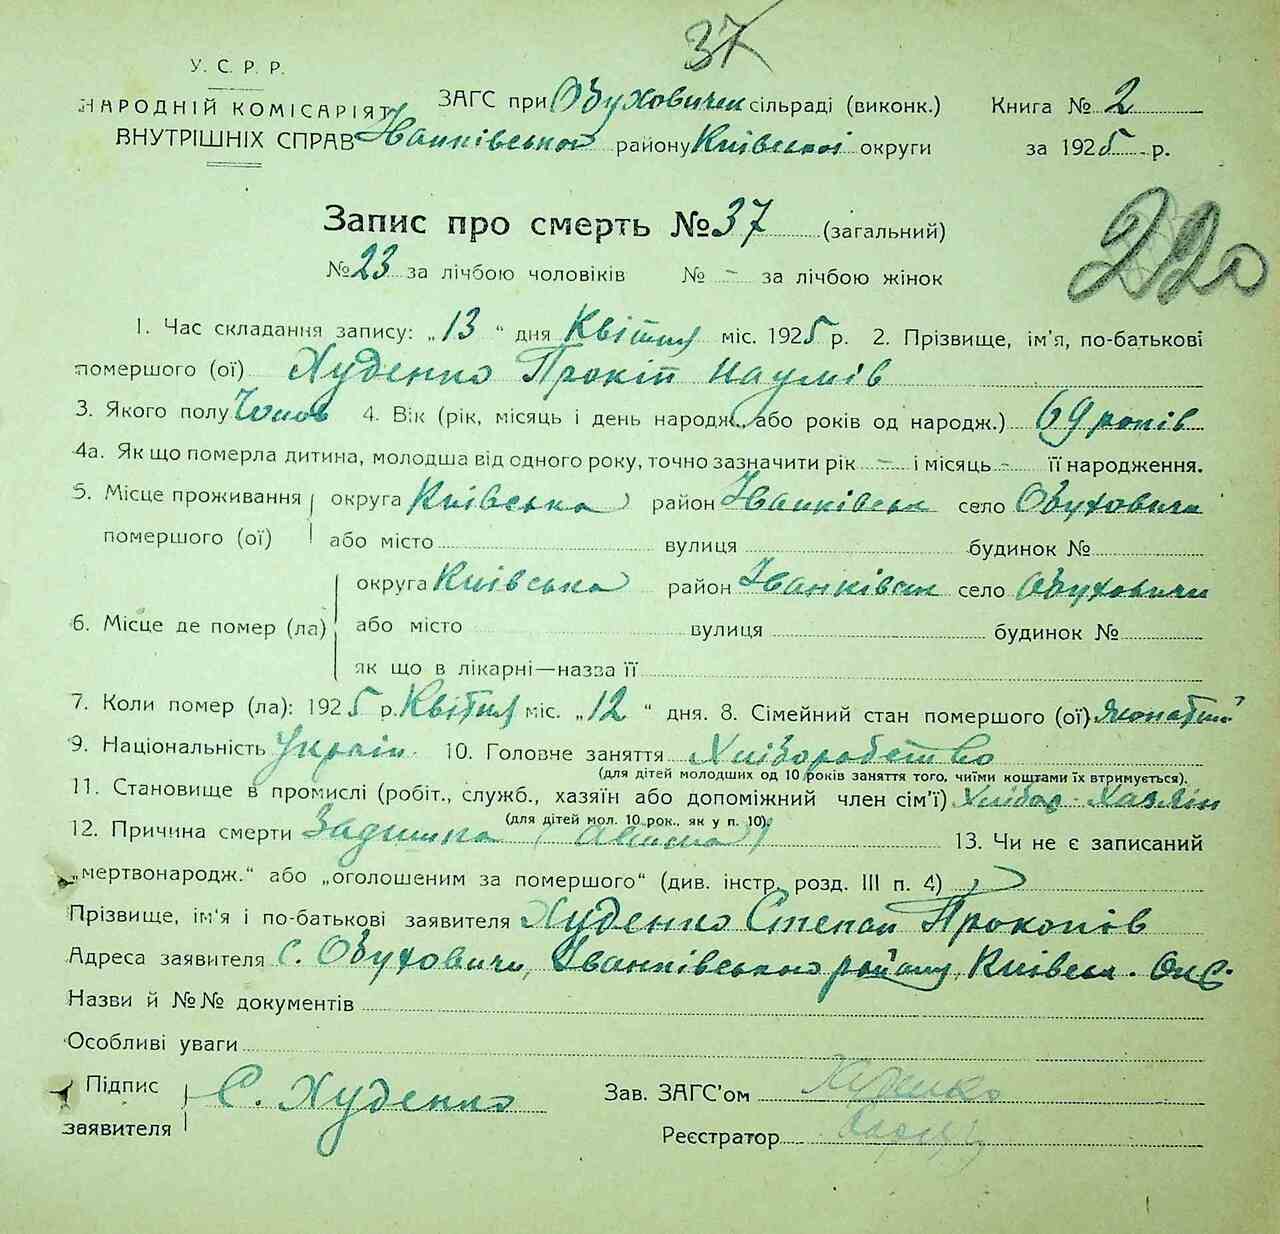 37
У. С. Р. Р.
НАРОДНІЙ КОМІСАРІЯТ
ВНУТРІШНІХ СПРАВ
ЗАГС при Обуховичек сільраді (виконк.)
Іванківської району Київської округи
Книга № 2
за 1925 р.
Запис про смерть № 37 (загальний)
220
№ 23 за лічбою чоловіків № - за лічбою жінок
1. Час складання запису: „13“ дня Квітня міс. 1925 р. 2. Прізвище, ім'я, по-батькові
помершого (ої) Худенко Прокіп Наумів
3. Якого полу Чолов 4. Вік (рік, місяць і день народж., або років од народж.) 69 років
4а. Як що померла дитина, молодша від одного року, точно зазначити рік - і місяць - її народження.
5. Місце проживання помершого (ої) округа Київська район Іванківськ село Обуховичи
або місто вулиця будинок №
6. Місце де помер (ла) округа Київська район Іванківськ село Обуховичи
або місто вулиця будинок №
як що в лікарні—назва її
7. Коли помер (ла): 1925 р. Квітня міс. „12“ дня. 8. Сімейний стан помершого (ої) жонатий
9. Національність Україн. 10. Головне заняття Хліборобство
(для дітей молодших од 10 років заняття того, чиїми коштами їх втримується).
11. Становище в промислі (робіт., служб., хазяїн або допоміжний член сім'ї) Хлібор. Хазяїн
(для дітей мол. 10 рок., як у п. 10).
12. Причина смерти Задишка 13. Чи не є записаний
„мертвонародж.“ або „оголошеним за помершого“ (див. інстр. розд. III п. 4)
Прізвище, ім'я і по-батькові заявителя Худенко Степан Прокопів
Адреса заявителя с. Обуховичи, Іванківського району Київськ. Окр.
Назви й №№ документів
Особливі уваги
Підпис заявителя С. Худенко
Зав. ЗАГС'ом
Реєстратор